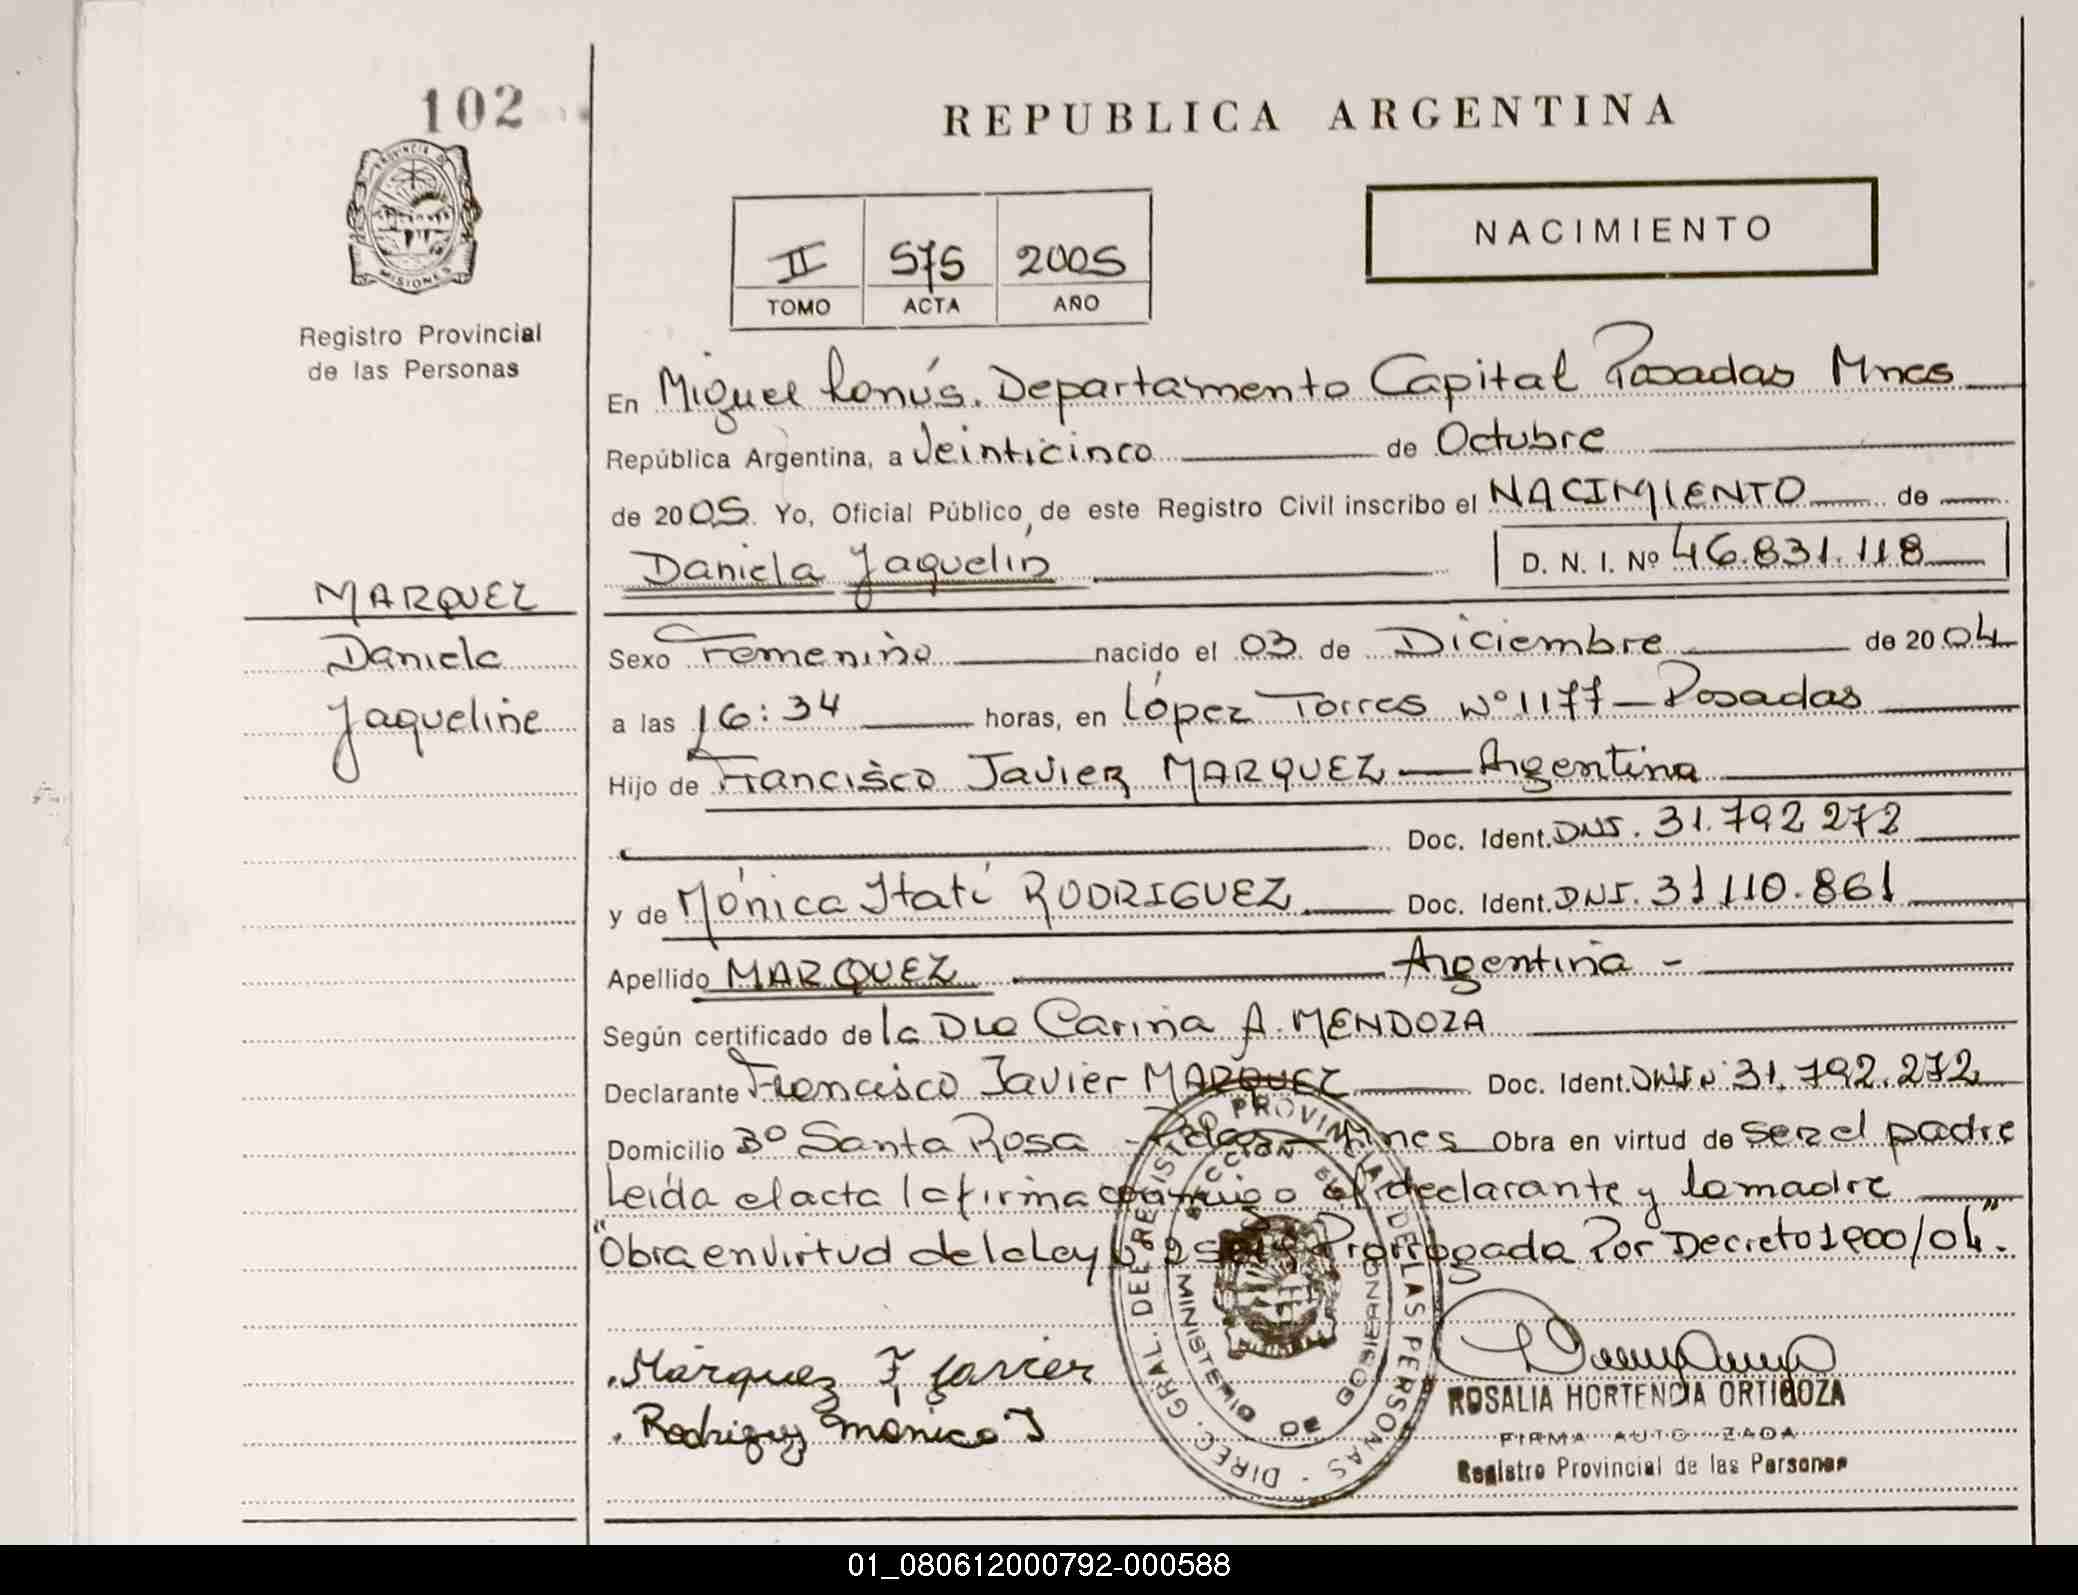 102
PROVINCIA DE
MISIONES
Registro Provincial
de las Personas
REPUBLICA ARGENTINA
NACIMIENTO
II 575 2005
TOMO ACTA AÑO
En Miguel Lanús. Departamento Capital Posadas Mnes
República Argentina, a Veinticinco de Octubre
de 2005. Yo, Oficial Público, de este Registro Civil inscribo el NACIMIENTO de
Daniela Jaquelin D. N. I. Nº 46.831.118
MARQUEZ
Daniela
Jaqueline
Sexo Femenino nacido el 03 de Diciembre de 2004
a las 16:34 horas, en López Torres Nº 1177 - Posadas
Hijo de Francisco Javier MARQUEZ — Argentina
Doc. Ident. DNI. 31.792 272
y de Mónica Itatí RODRIGUEZ Doc. Ident. DNI. 31 110.861
Apellido MARQUEZ Argentina -
Según certificado de la Dra Carina A. MENDOZA
Declarante Francisco Javier MARQUEZ Doc. Ident. DNI Nº 31.792.272
Domicilio Bº Santa Rosa - Pdas - Mnes Obra en virtud de ser el padre
Leída el acta la firma conmigo el declarante y la madre
"Obra en virtud de la Ley Prorrogada Por Decreto 1900/04".
Márquez F Javier
Rodriguez Monica I
DIREC. GRAL. DEL REGISTRO PROVINCIAL DE LAS PERSONAS
MINISTERIO DE GOBIERNO
ROSALIA HORTENCIA ORTIGOZA
FIRMA AUTO ZADA
Registro Provincial de las Personas
01_080612000792-000588